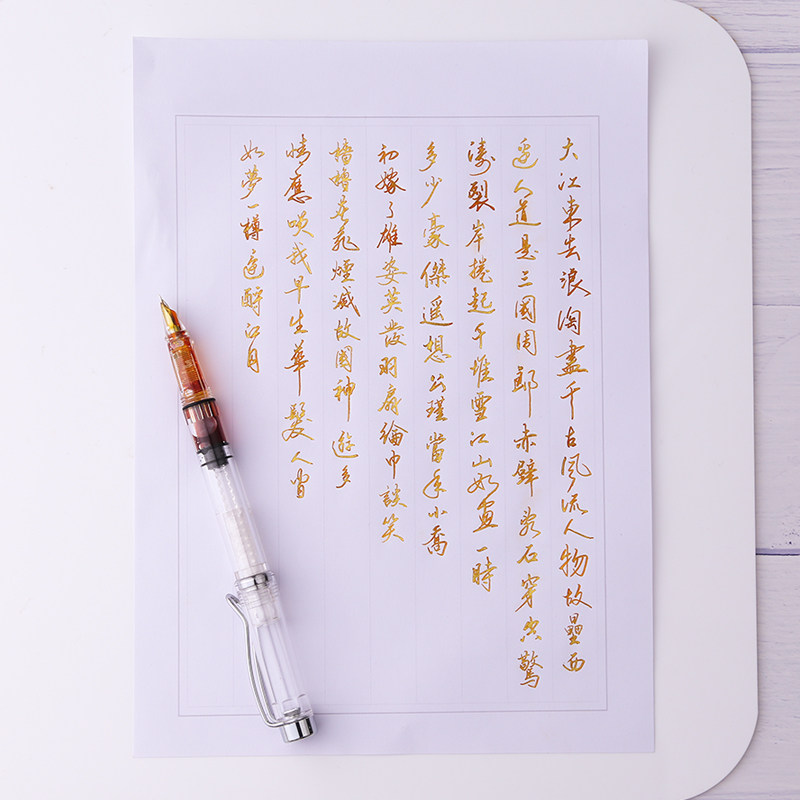 大江東去浪淘盡千古風流人物故壘西
邊人道是三國周郎赤壁亂石穿空驚
濤裂岸捲起千堆雪江山如畫一時
多少豪傑遥想公瑾當年小喬
初嫁了雄姿英發羽扇綸巾談笑
檣櫓灰飛煙滅故國神遊多
情應笑我早生華髮人間
如夢一樽還酹江月